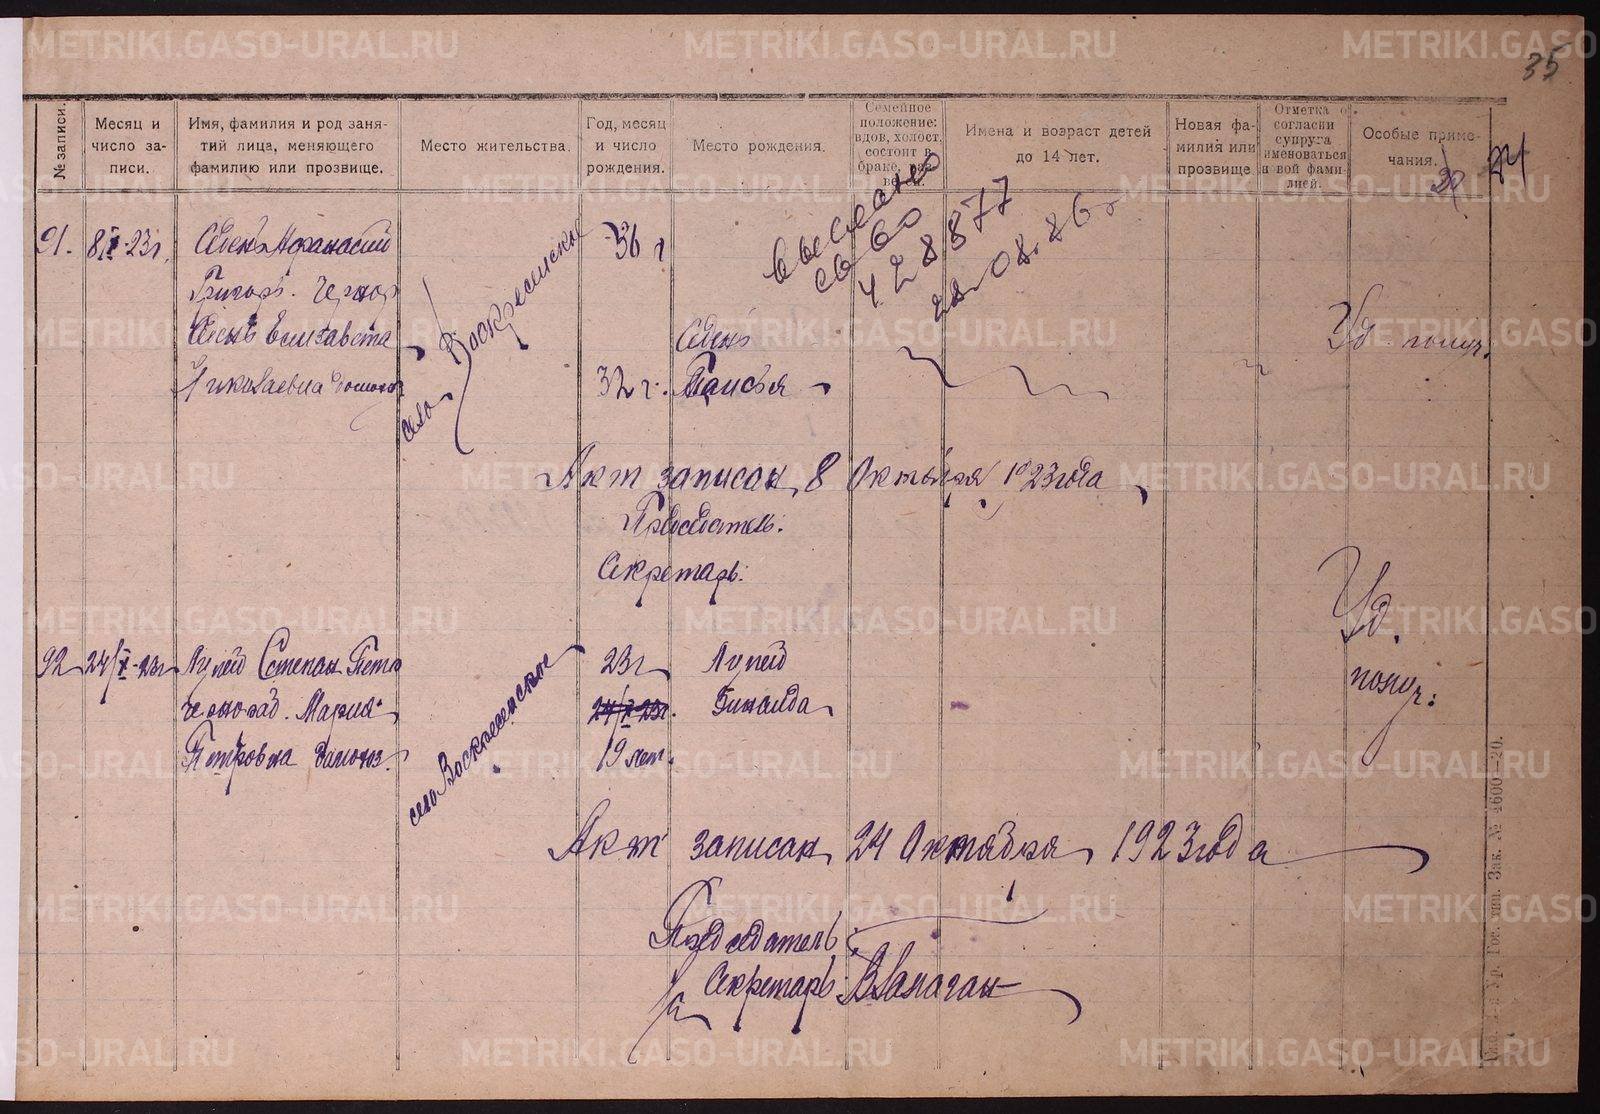 METRIKI.GASO-URAL.RU
35
№ записи.
Месяц и число записи.
Имя, фамилия и род занятий лица, меняющего фамилию или прозвище.
Место жительства.
Год, месяц и число рождения.
Место рождения.
Семейное положение: вдов, холост, состоит в браке,
Имена и возраст детей до 14 лет.
Новая фамилия или прозвище
Отметка о согласии супруга именоваться новой фамилией.
Особые примечания.
24
выслано
св во
428877
22.08.86 г
91.
8/X-23 г.
Афанасий
Григорь.
Елизавета
Николаевна домохоз
село Воскресенское
36 г
32 г.
Уд. получ.
Акт записан 8 Октября 1923 года
Председатель.
Секретарь.
92
24/X-23 г
Лупей Степан Пет
Мария
Петровна домохоз.
село Воскресенское
23 г
24/X-23 г.
19 лет.
Лупей
Уд.
получ.
Акт записан 24 Октября 1923 года
Председатель
Секретарь
Зак. № 4600—20.